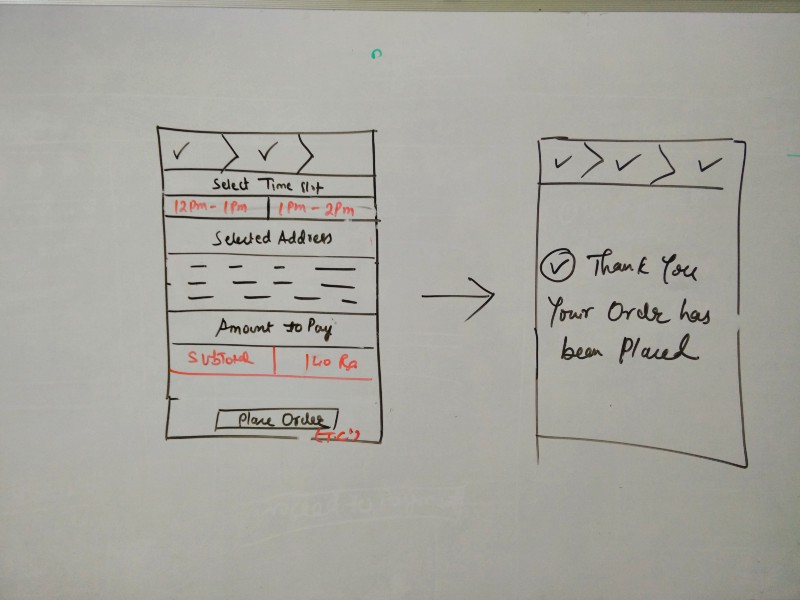 Select Time slot
12Pm - 1Pm
1Pm - 2Pm
Selected Address
Amount to Pay
SUBTOTAL
140 Rs
Place Order
Thank You
Your Order has
been Placed